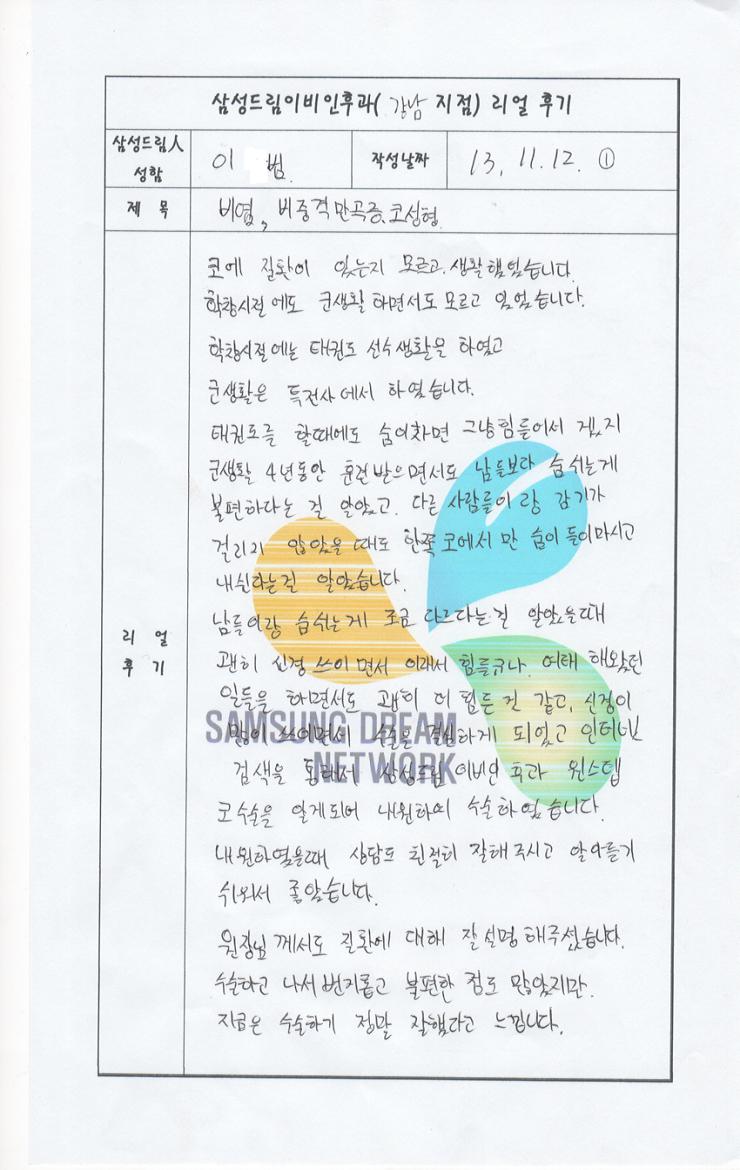 삼성드림이비인후과( 강남 지점) 리얼 후기
삼성드림人
성함
이 범
작성날짜
13. 11. 12. ①
제 목
비염, 비중격만곡증, 코성형
리 얼
후 기
코에 질환이 있는지 모르고. 생활했었습니다.
학창시절에도 군생활 하면서도 모르고 있었습니다.
학창시절에는 태권도 선수생활을 하였고
군생활은 특전사에서 하였습니다.
태권도를 할때에도 숨이차면 그냥힘들어서 겠지
군생활 4년동안 훈련받으면서도 남들보다 숨쉬는게
불편하다는 걸 알았고. 다른 사람들이랑 감기가
걸리지 않았을 때도 한쪽 코에서만 숨이 들이마시고
내쉰다는걸 알았습니다.
남들이랑 숨쉬는게 조금 다르다는걸 알았을때
괜히 신경 쓰이면서 이래서 힘들구나. 여태 해왔던
일들을 하면서도 괜히 더 힘든 것 같고, 신경이
많이 쓰이면서 수술을 결심하게 되었고 인터넷
SAMSUNG DREAM
NETWORK
검색을 통해서 삼성드림 이비인후과 원스텝
코수술을 알게되어 내원하여 수술하였습니다.
내원하였을때 상담도 친절히 잘해주시고 알아듣기
쉬워서 좋았습니다.
원장님께서도 질환에 대해 잘 설명해주셨습니다.
수술하고 나서 번거롭고 불편한 점도 많았지만.
지금은 수술하기 정말 잘했다고 느낍니다.